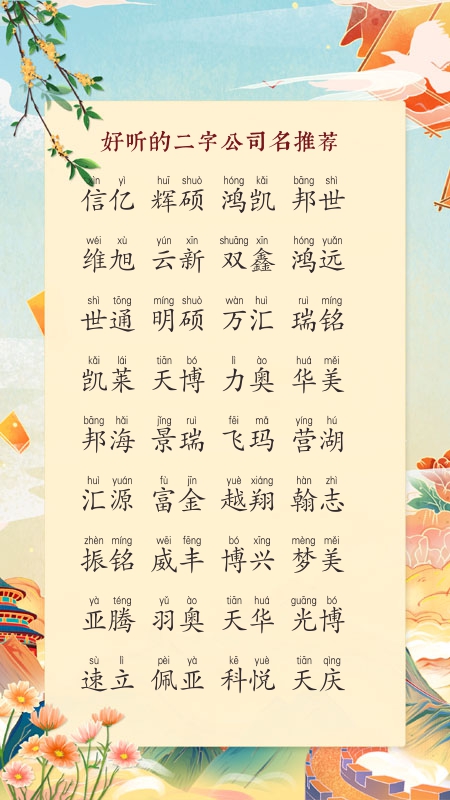 好听的二字公司名推荐
xìn yì huī shuò hóng kǎi bāng shì
信亿 辉硕 鸿凯 邦世
wéi xù yún xīn shuāng xīn hóng yuǎn
维旭 云新 双鑫 鸿远
shì tōng míng shuò wàn huì ruì míng
世通 明硕 万汇 瑞铭
kǎi lái tiān bó lì ào huá měi
凯莱 天博 力奥 华美
bāng hǎi jǐng ruì fēi mǎ yíng hú
邦海 景瑞 飞玛 营湖
huì yuán fù jīn yuè xiáng hàn zhì
汇源 富金 越翔 翰志
zhèn míng wēi fēng bó xīng mèng měi
振铭 威丰 博兴 梦美
yà téng yǔ ào tiān huá guāng bó
亚腾 羽奥 天华 光博
sù lì pèi yà kē yuè tiān qìng
速立 佩亚 科悦 天庆